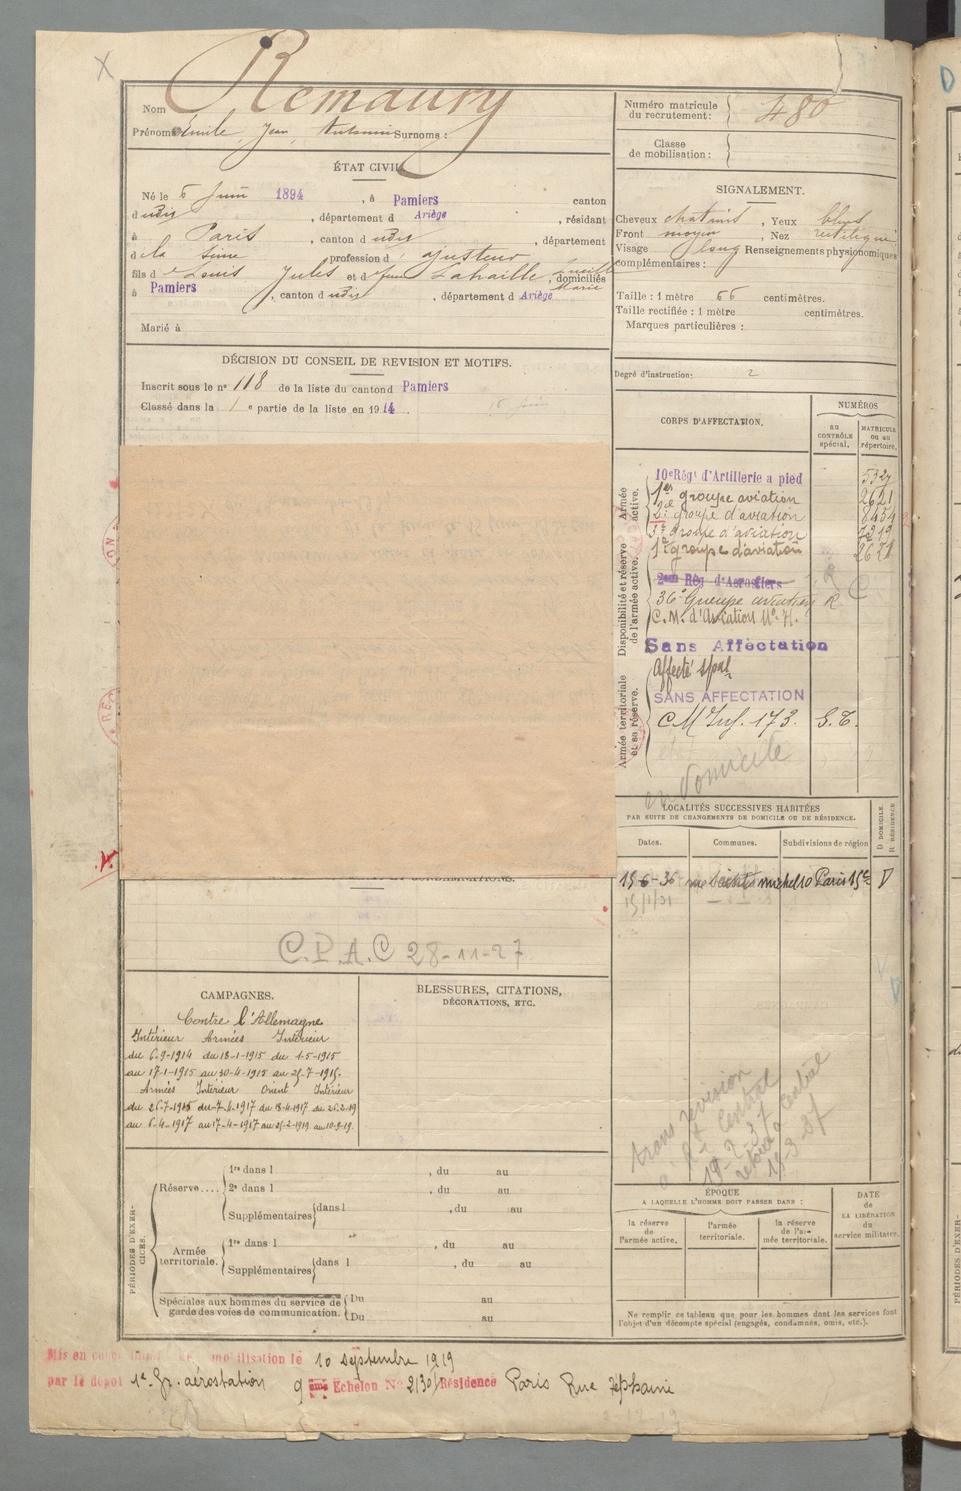 Nom Remaury
Prénoms Emile Jean Antonin Surnoms :
ÉTAT CIVIL
Né le 6 Juin 1894, à Pamiers canton
d udit, département d Ariège, résidant
à Paris, canton d udit, département
d e la Seine profession d ajusteur
fils d e Louis Jules et d e feue Lahaille Lucille Marie, domiciliés
à Pamiers, canton d udit, département d Ariège
Marié à
DÉCISION DU CONSEIL DE REVISION ET MOTIFS.
Inscrit sous le nº 118 de la liste du canton d Pamiers
Classé dans la 1 e partie de la liste en 1914.
C.P.A.C 28-11-27
CAMPAGNES.
Contre l'Allemagne
Intérieur Armées Intérieur
du 6-9-1914 du 18-1-1915 du 1-5-1915
au 17-1-1915 au 30-4-1915 au 25-7-1915.
Armées Intérieur Orient Intérieur
du 26-7-1915 du 7-4-1917 du 18-4-1917 du 26-2-19
au 6-4-1917 au 17-4-1917 au 25-2-1919 au 10-9-19.
BLESSURES, CITATIONS,
DÉCORATIONS, ETC.
PÉRIODES D'EXERCICES.
Réserve....
1re dans l , du au
2e dans l , du au
Supplémentaires dans l , du au
Armée territoriale.
1re dans l , du au
Supplémentaires dans l , du au
Spéciales aux hommes du service de
garde des voies de communication.
Du au
Du au
Numéro matricule
du recrutement: 480
Classe
de mobilisation :
SIGNALEMENT.
Cheveux chatains, Yeux bleus
Front moyen, Nez rectiligne
Visage long Renseignements physionomiques
complémentaires :
Taille : 1 mètre 66 centimètres.
Taille rectifiée : 1 mètre centimètres.
Marques particulières :
Degré d'instruction: 2
CORPS D'AFFECTATION.
NUMÉROS
au CONTRÔLE spécial.
MATRICULE ou au répertoire.
Armée active.
10e Régt d'Artillerie a pied 5327
1er groupe aviation 2621
2e groupe d'aviation 8454
3e groupe d'aviation 7219
1er groupe d'aviation 2621
Disponibilité et réserve de l'armée active.
2eme Rég. d'Aerostiers
36e Groupe aviation R
C.M. d'Aviation Nº 71.
Sans Affectation
Armée territoriale et sa réserve.
Affecté spal
SANS AFFECTATION
CM Inf. 173. S.T.
en Domicile
LOCALITÉS SUCCESSIVES HABITÉES
PAR SUITE DE CHANGEMENTS DE DOMICILE OU DE RÉSIDENCE.
Dates. Communes. Subdivisions de région D DOMICILE. R RÉSIDENCE
15-6-36 10 Paris 15e D
trans revision
Central
19-2-37
retour à Central
11-3-37
ÉPOQUE
A LAQUELLE L'HOMME DOIT PASSER DANS :
la réserve de l'armée active.
l'armée territoriale.
la réserve de l'armée territoriale.
DATE
de
LA LIBÉRATION
du
service militaire.
Ne remplir ce tableau que pour les hommes dont les services font
l'objet d'un décompte spécial (engagés, condamnés, omis, etc.).
Mis en congé de démobilisation le 10 septembre 1919
par le dépot 1er Gr. aérostation 9 eme Echelon Nº 2130 Résidence Paris Rue